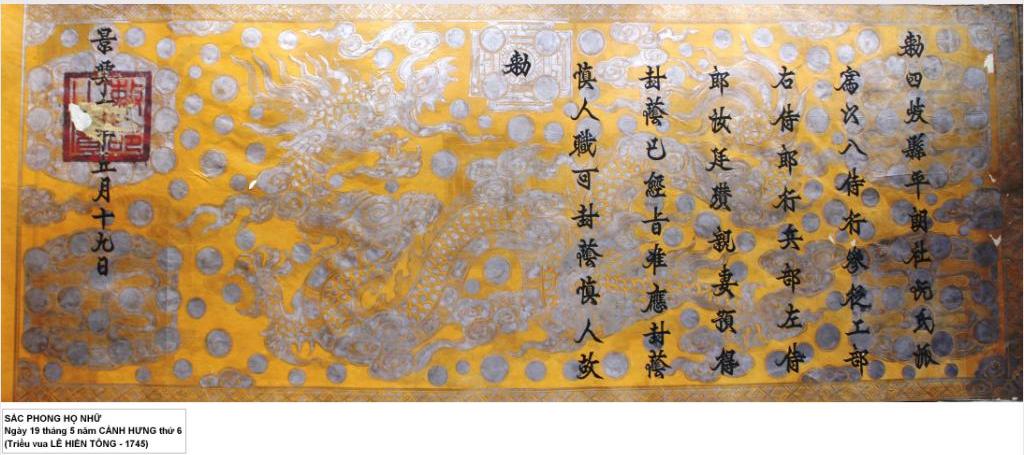 勅四岐縣平朗社阮氏派
為以八侍行參從工部
右侍郎行兵部左侍
郎故廷瓚親妻預得
封蔭已經旨准應封蔭
慎人職可封蔭慎人故
勅
景興六年五月十九日
SẮC PHONG HỌ NHỮ
Ngày 19 tháng 5 năm CẢNH HƯNG thứ 6
(Triều vua LÊ HIỂN TÔNG - 1745)